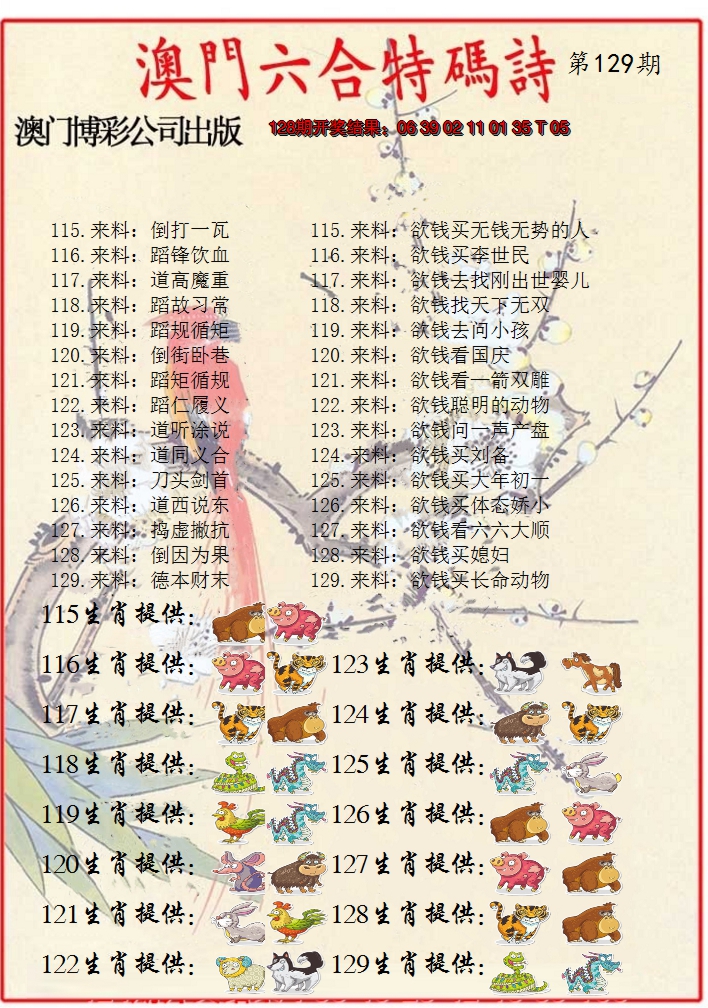 澳門六合特碼詩 第129期
澳门博彩公司出版 128期开奖结果：06 39 02 11 01 35 T 05
115.来料：倒打一瓦 115.来料：欲钱买无钱无势的人
116.来料：蹈锋饮血 116.来料：欲钱买李世民
117.来料：道高魔重 117.来料：欲钱去找刚出世婴儿
118.来料：蹈故习常 118.来料：欲钱找天下无双
119.来料：蹈规循矩 119.来料：欲钱去问小孩
120.来料：倒街卧巷 120.来料：欲钱看国庆
121.来料：蹈矩循规 121.来料：欲钱看一箭双雕
122.来料：蹈仁履义 122.来料：欲钱聪明的动物
123.来料：道听涂说 123.来料：欲钱问一声产盘
124.来料：道同义合 124.来料：欲钱买刘备
125.来料：刀头剑首 125.来料：欲钱买大年初一
126.来料：道西说东 126.来料：欲钱买体态娇小
127.来料：捣虚撇抗 127.来料：欲钱看六六大顺
128.来料：倒因为果 128.来料：欲钱买媳妇
129.来料：德本财末 129.来料：欲钱买长命动物
115生肖提供：
116生肖提供： 123生肖提供：
117生肖提供： 124生肖提供：
118生肖提供： 125生肖提供：
119生肖提供： 126生肖提供：
120生肖提供： 127生肖提供：
121生肖提供： 128生肖提供：
122生肖提供： 129生肖提供：